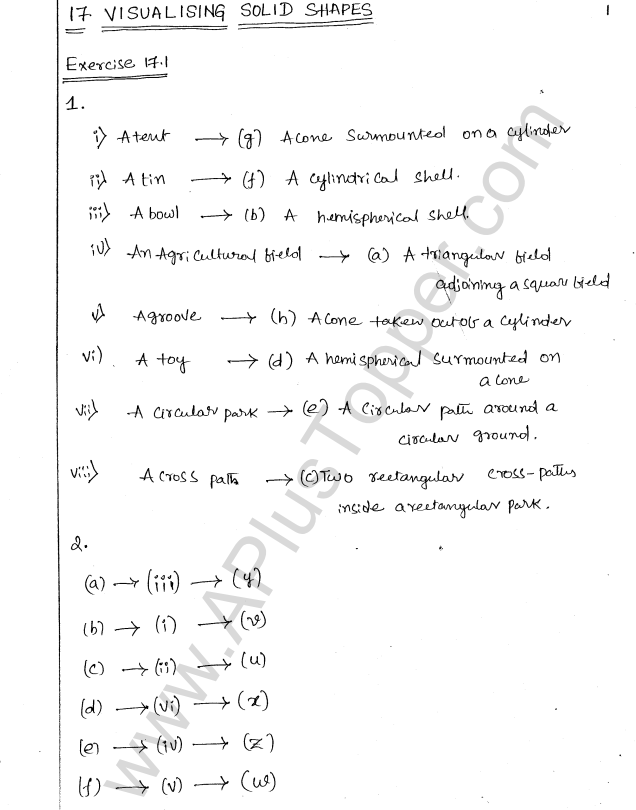 17 VISUALISING SOLID SHAPES 1
Exercise 17.1
1.
i) A tent → (g) A cone surmounted on a cylinder
ii) A tin → (f) A cylindrical shell.
iii) A bowl → (b) A hemispherical shell.
iv) An Agricultural field → (a) A triangular field
adjoining a squar field
v) A groove → (h) A cone taken out of a cylinder
vi) A toy → (d) A hemispherical surmounted on
a cone
vii) A circular park → (e) A circular path around a
circular ground.
viii) A cross path → (c) Two rectangular cross-paths
inside a rectangular park.
2.
(a) → (iii) → (y)
(b) → (i) → (v)
(c) → (ii) → (u)
(d) → (vi) → (x)
(e) → (iv) → (z)
(f) → (v) → (w)
www.APlusTopper.com